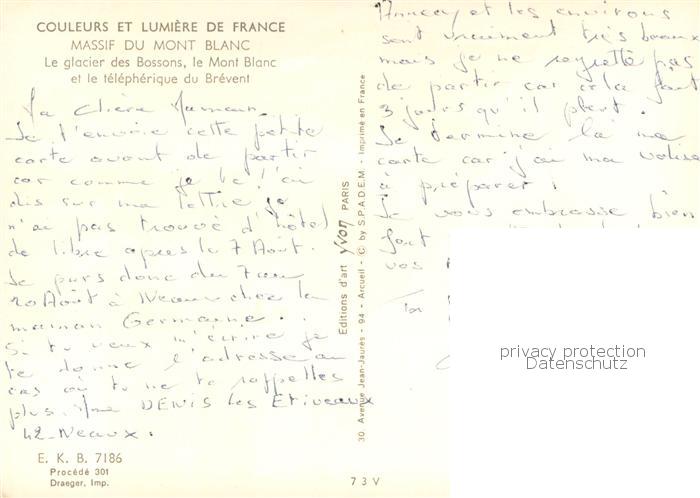 COULEURS ET LUMIÈRE DE FRANCE
MASSIF DU MONT BLANC
Le glacier des Bossons, le Mont Blanc
et le téléphérique du Brévent
Ma Chère Maman
Je t'envoie cette petite
carte avant de partir
car comme je te l'ai
dis sur ma lettre je
n'ai pas trouvé d'hôtel
de libre après le 7 Août.
Je pars donc du 7 au
20 Août à Neaux chez la
maman Germaine.
Si tu veux m'écrire je
te donne l'adresse au
cas où tu ne te rappelles
plus. Mme DENIS les Etiveaux
42 - Neaux.
E. K. B. 7186
Procédé 301
Draeger, Imp.
Editions d'art yvon PARIS
30, Avenue Jean-Jaurès - 94 - Arcueil - © by S.P.A.D.E.M. - Imprimé en France
73V
Annecy et les environs
sont vraiment très beaux
mais je ne regrette pas
de partir car cela fait
3 jours qu'il pleut.
Je termine là ma
carte car j'ai ma valise
à préparer.
Je vous embrasse bien
fort
vos
privacy protection
Datenschutz